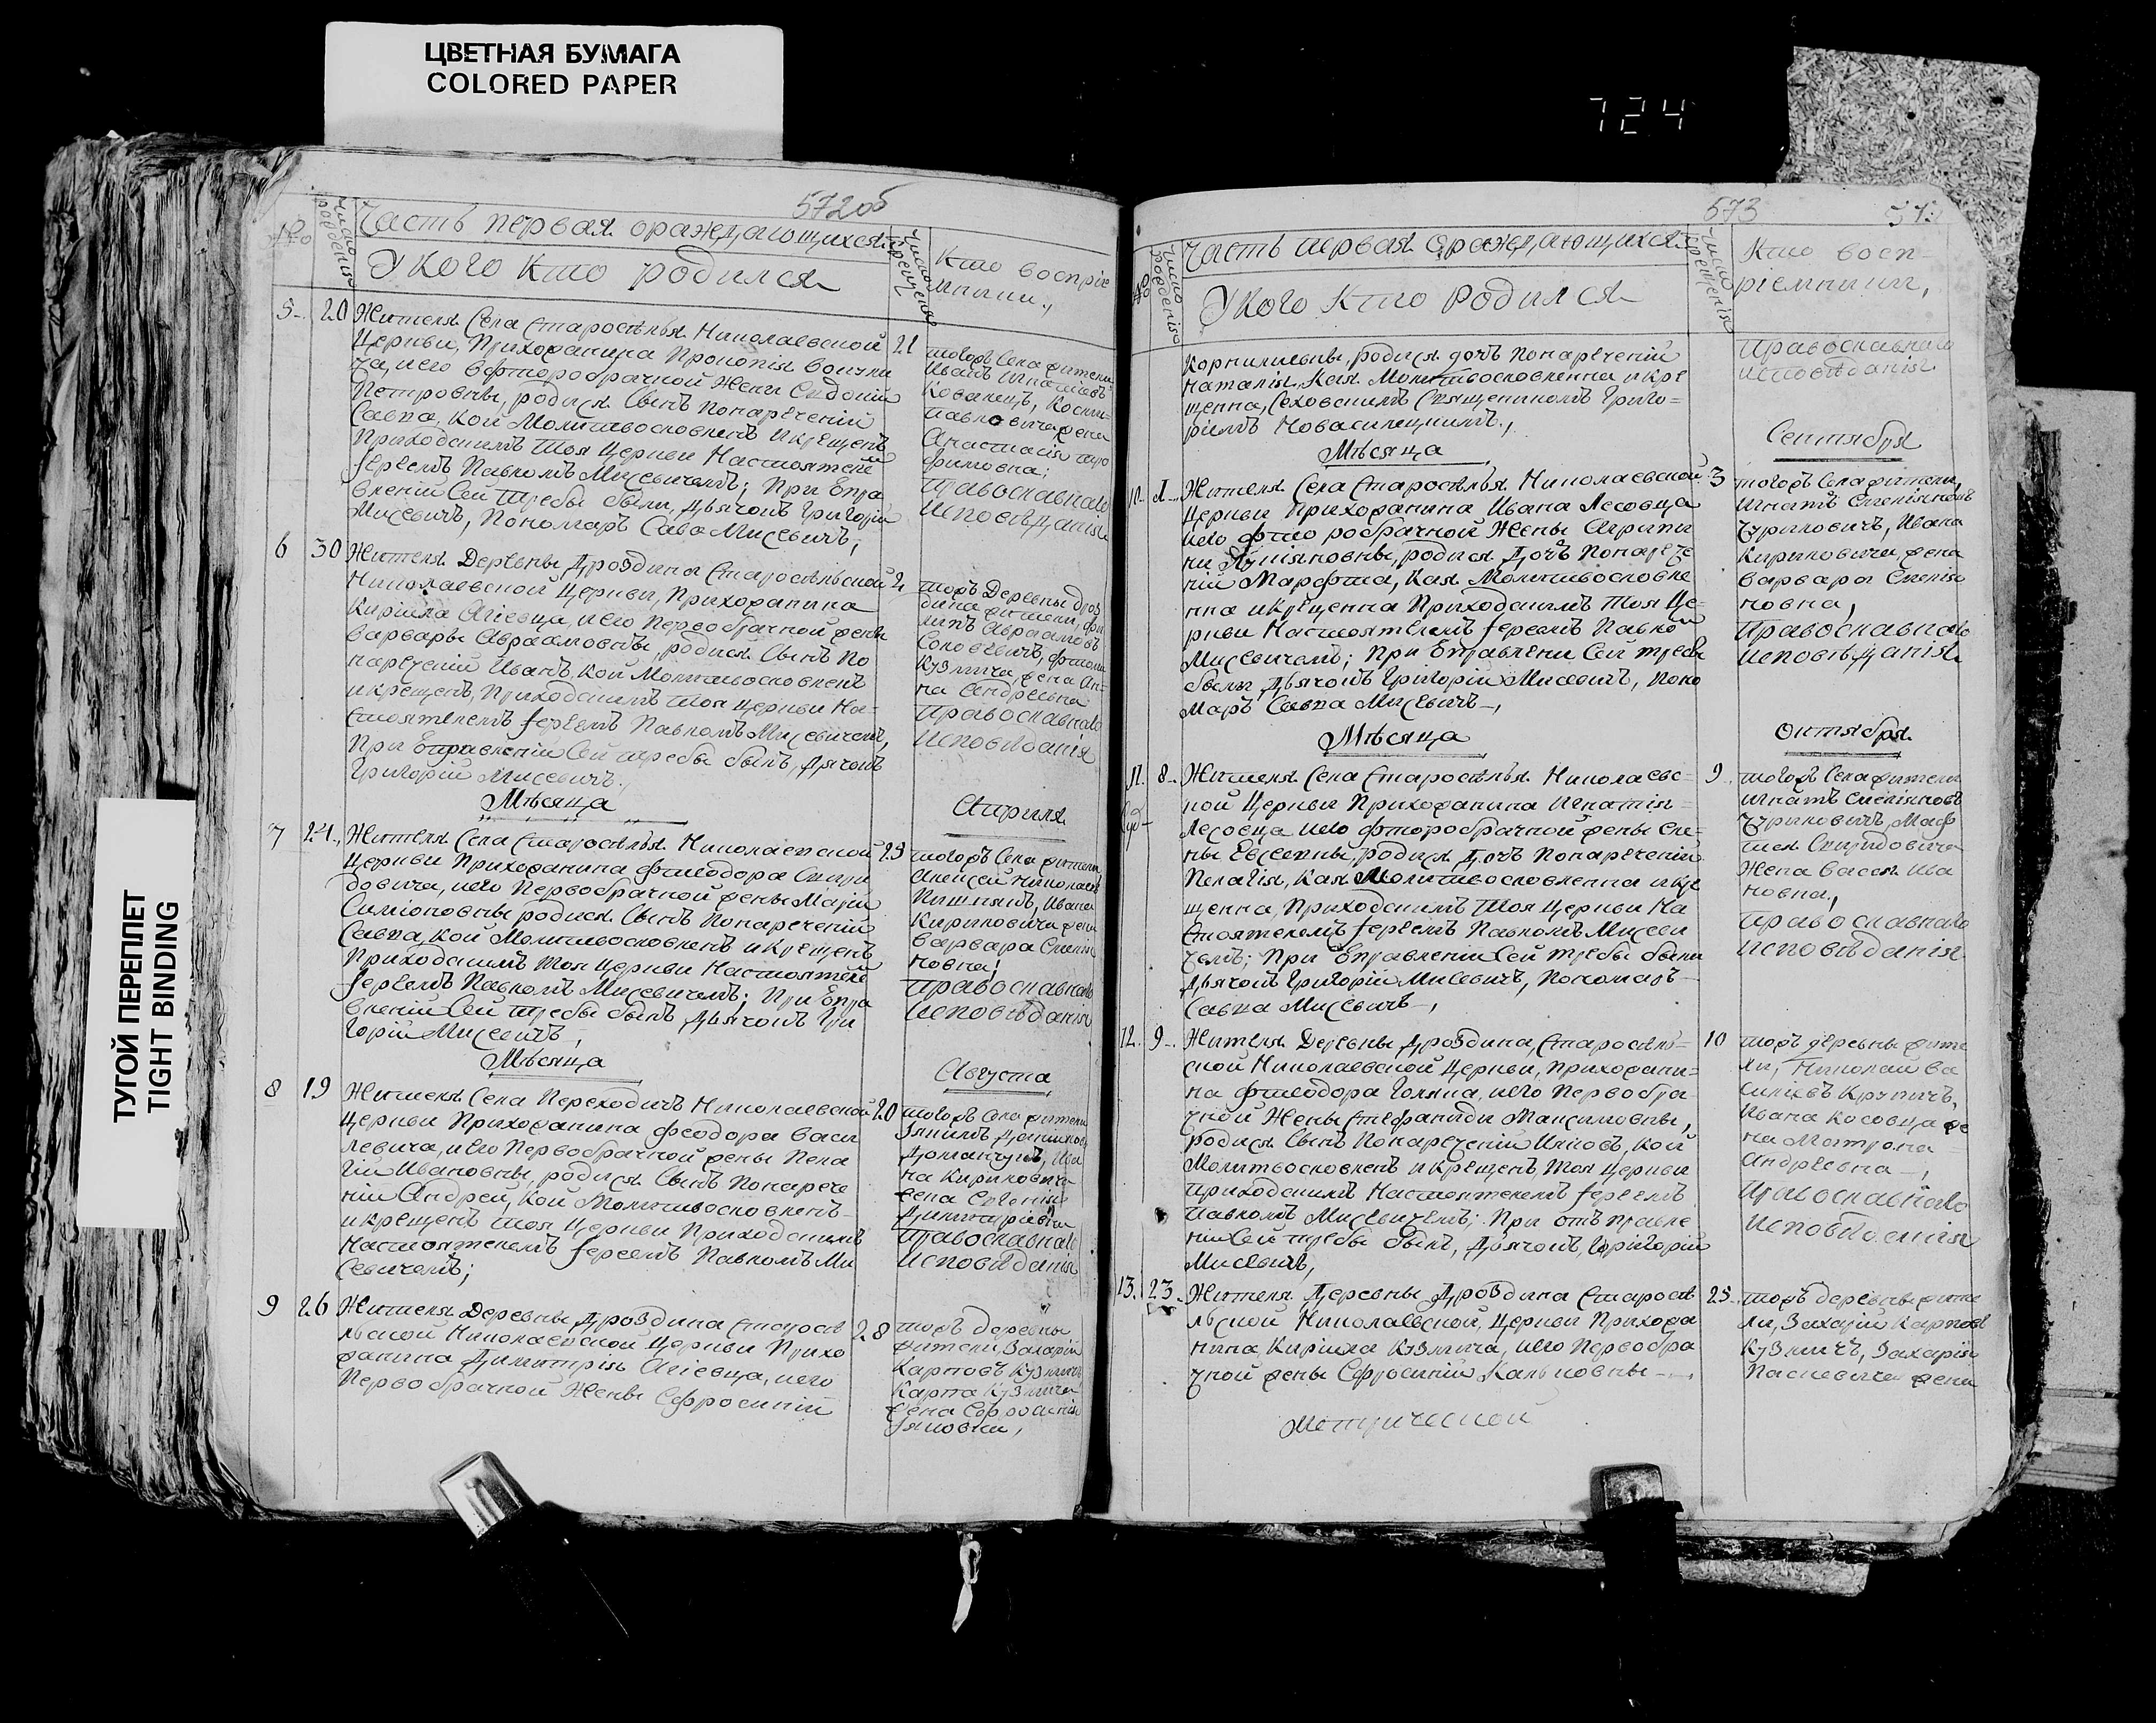 ЦВЕТНАЯ БУМАГА
COLORED PAPER
724
ТУГОЙ ПЕРЕПЛЕТ
TIGHT BINDING
572об
№
число рождения
Часть первая ораждающихся
У кого кто родился
число крещения
Кто восприе
мники,
5
20
Жителя Села Староселья Николаевской
Церкви, Прихожанина Прокопія
ча, иего вфторобрачной жены Сидоніи
Петровны, родися Сынъ Понаречений
Савва, кой Молитвословленъ икрещенъ
Приходскимъ тоя Церкви Настоятеле
Іереемъ Павломъ Мисевичемъ; При Епра
вленій Сей требы были, Дьячокъ Григорій
Мисевичъ, Пономаръ Сава Мисевичъ,
21
тогожъ Села жители
Иванъ Игнатіевъ
Ковалецъ,
Павловича жена
Анастасія тро
фимовна;
Православнаго
Исповѣданія
6
30
Жителя Деревны Дроздина Старосѣльской
Николаевской Церкви, Прихожанина
Кирила Агіевца, иего Первобрачной жены
Варвары Авраамовны, родися Сынъ По
наречений Иванъ, кой Молитвословленъ
икрещенъ, Приходскимъ тоя Церкви На-
стоятелемъ Іереемъ Павломъ Мисевичемъ,
При Еправленій Сей требы былъ, Дячокъ
Григорій Мисевичъ.
тояжъ Деревны Дроз
дина жители, Фи
липъ Авраамовъ
Соловевичъ,
Кузмича, жена Ан-
на Андреевна
Православнаго
Исповѣданія
Мѣсяца
Априля
7
24
Жителя Села Староселья Николаевской
Церкви Прихожанина Фтеодора Спири
довича, иего Первобрачной жены Маріи
Симіоновны родися Сынъ Понаречений
Савва, кой Молитвословленъ икрещенъ
Приходскимъ тоя Церкви Настоятеле
Іереемъ Павломъ Мисевичемъ; При Епра
вленій Сей требы былъ, Дьячокъ Гри
горій Мисевичъ,
25
тогожъ Села жители
Алексей Николаевъ
Пишнякъ, Ивана
Кириловича жена
Варвара
новна;
Православнаго
Исповѣданія
Мѣсяца
Августа
8
19
Жителя Села Переходичъ Николаевской
Церкви Прихожанина Феодора Васи
левича, иего Первобрачной жены Пела
гіи Ивановны, родися Сынъ Понарече
ній Андрей, кой Молитвословленъ
икрещенъ тоя Церкви Приходскимъ
Настоятелемъ Іереемъ Павломъ Ми
севичемъ;
20
тогожъ Села жители
Данилов
Доманчукъ, Ива
на Кириловича
жена Евгенія
Димитріевна
Православнаго
Исповѣданія
9
26
Жителя Деревны Дроздина Старосѣ
льской Николаевской Церкви Прихо
жанина Димитрія Агіевца, иего
Первобрачной Жены Ефросиніи
28
тояжъ деревны
жители, Захарій
Карповъ Кузмичъ
Карпа Кузмича
жена Ефросинія
573
№
число рождения
Часть первая Ораждающихся
У кого кто родился
число крещения
Кто восп-
ріемники,
Корнилиевны, родися дочъ Понаречений
Наталія, Кая Молитвословленна икре
щенна, Сеховскимъ Священикомъ Григо-
ріемъ Новаселецкимъ,
Православнаго
исповѣданія
Мѣсяца
Сентября
10
Жителя Села Староселья Николаевской
Церкви Прихожанина Ивана Лесовца
иего фторобрачной Жены Агрипи
ны родися Дочъ Понарече
ній Марфта, Кая Молитвословле
нна икрещенна Приходскимъ Тоя Це-
ркви Настоятелемъ Іереемъ Павло
Мисевичемъ; При Еправлени Сей требы
были Дьячокъ Григорій Мисевичъ, Поно
маръ Савва Мисевичъ,
3
тогожъ Села жители,
Игнатъ
Чуриловичъ, Ивана
Кириловича жена
Варвара
новна,
Православнаго
исповѣданія
Мѣсяца
Октября
11.
8
Жителя Села Староселья Николаевс-
кой Церкви Прихожанина Игнатія
Лесовца иего фторобрачной жены Еле-
ны Евсеевны, родися Дочъ Понаречений
Пелагія, Кая Молитвословленна икре
щенна, Приходскимъ тоя Церкви На
стоятелемъ Іереемъ Павломъ Мисеви
чемъ; При Еправленій Сей требы были
Дьячокъ Григорій Мисевичъ, Пономаръ
Савва Мисевичъ,
9
тогожъ Села жители
Игнатъ
Чуриловичъ, Маф
тея Спиридовича
Жена Васса Ива
новна,
Православнаго
исповѣданія
12.
9
Жителя Деревны Дроздина, Старосель-
ской Николаевской Церкви, Прихожани-
на Фтеодора Голяка, иего Первобра-
чной Жены Стефаниди Максимовны,
родися Сынъ Понаречений Иаковъ, Кой
Молитвословленъ икрещенъ, Тоя Церкви
Приходскимъ Настоятелемъ Іереемъ
Павломъ Мисевичемъ; При отправле
ніи Сей требы былъ, Дьячокъ, Григорій
Мисевичъ,
10
тояжъ деревны жите
ли, Николай Ва
силіевъ Крупичъ,
Ивана Косовца же
на Матрона
Андреевна,
Православнаго
исповѣданія
13.
23
Жителя Деревны Дроздина Старосѣ
льской Николаевской, Церкви Прихожа
нина, Кирила Кузмича, иего Первобра
чной жены Ефросиніи Карповны
25
тояжъ деревны жите
ли, Захарій Карповъ
Кузмичъ, Захарія
Пасиевича жена
Метрической